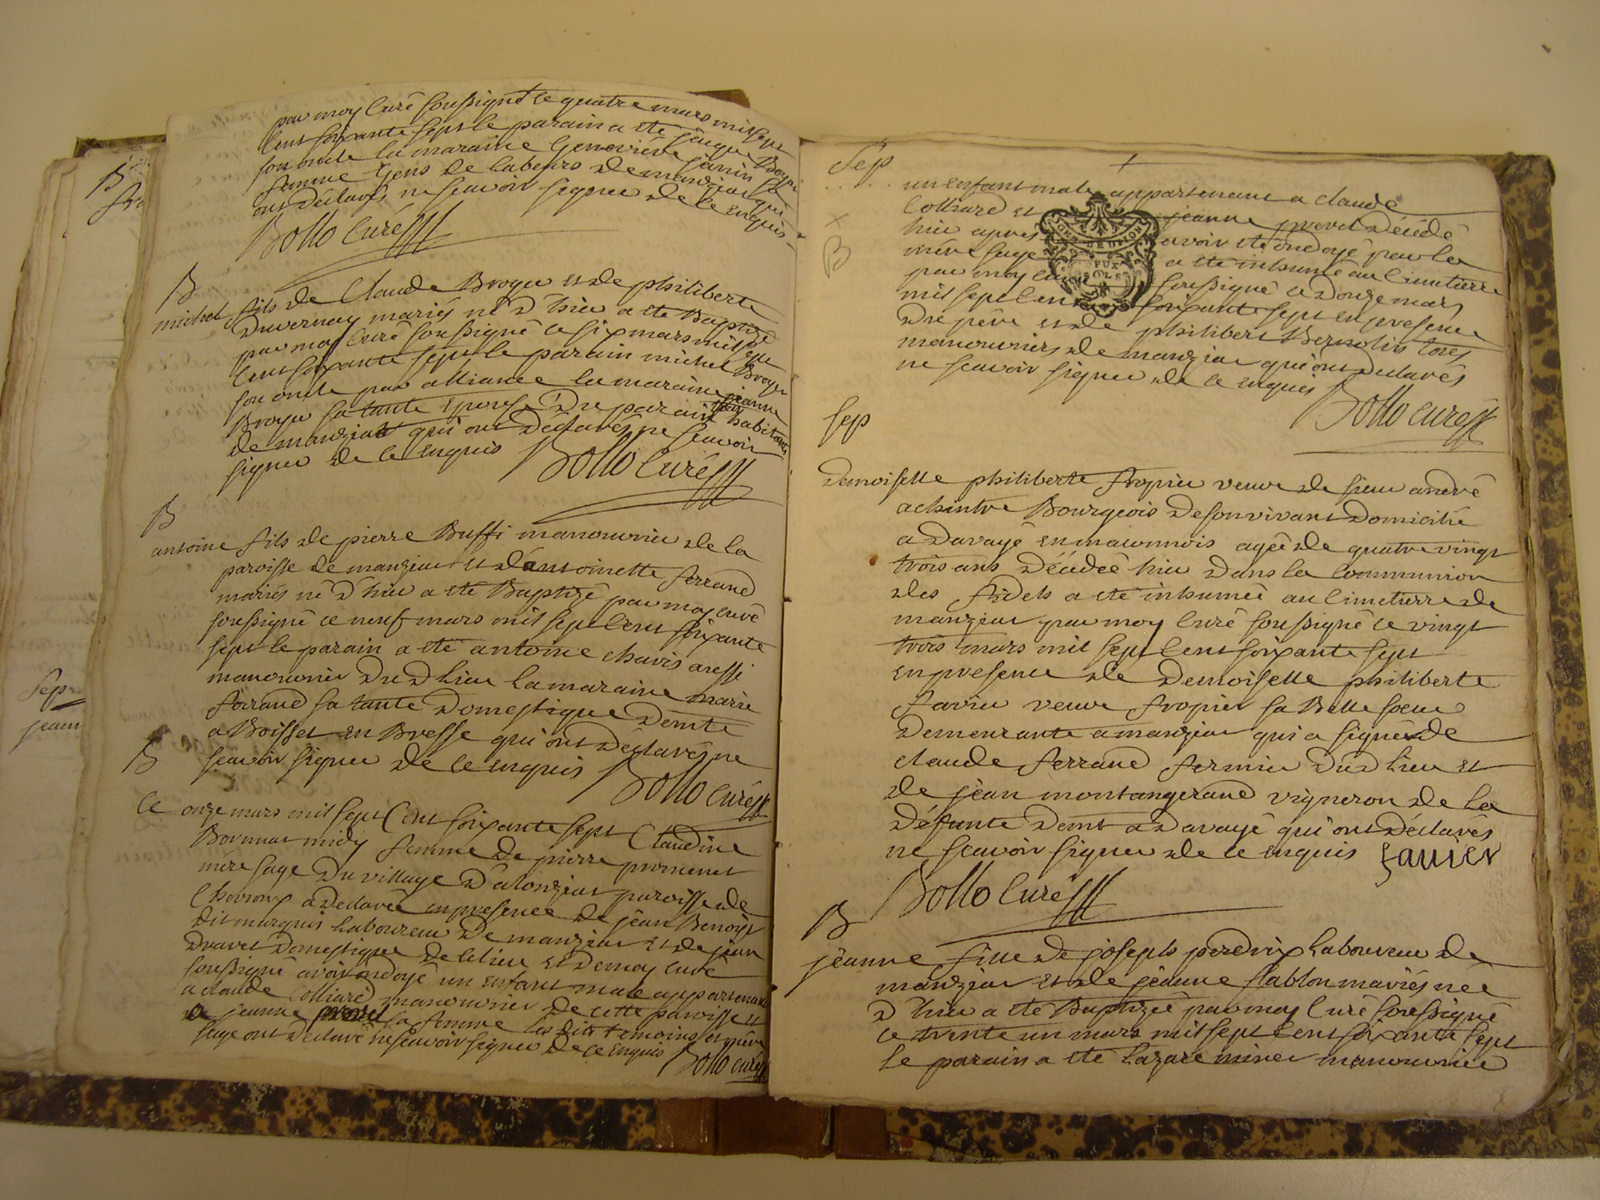 par moy Curé soussigné le quatre mars mil sept
Cent soixante sept le parain a ete jaique Broyer
son oncle la maraine Geneviéve janin sa
femme Gens de labeurs de manziat qui
ont déclarés ne scavoir signer de ce enquis
Bollo Curé
B
michel fils de Claude Broyer et de philiberte
Duvernay mariés né d'hier a ete Baptizé
par moy Curé soussigné le six mars mil sept
Cent soixante sept le parain michel Broyer
son oncle par alliance la maraine jeanne
Broyer sa tante epouse dud parain habitans
de manziat qui ont déclarés ne scavoir
signer de ce enquis Bollo Curé
B
antoine fils de pierre Buffi manouvrier de la
paroisse de manziat et d'antoinette ferrand
mariés né d'hier a ete Baptizé par moy curé
soussigné ce neuf mars mil sept Cent soixante
sept le parain a ete antoine chavis aussi
manouvrier dud lieu la maraine marie
ferrand sa tante domestique demte
a Boisset en Bresse qui ont déclarés ne
scavoir signer de ce enquis Bollo Curé
B
Ce onze mars mil sept Cent soixante sept Claudine
femme de pierre promenet
mere sage du village d'alonziat paroisse de
Chevroux a declaré en presence de jean Benoist
dit marquis laboureur de manziat et de jean
dravet domestique de ce lieu et de moy curé
soussigné avoir ondoyé un enfant male appartenant
a claude Colliard manouvrier de cette paroisse et
a jeanne provel sa femme les dits temoins et mère
sage ont declaré ne scavoir signer de ce enquis
Bollo Curé
Sep
jeann
Sep
un enfant male appartenant a claude
Colliard et jeanne provel décédé
hier apres avoir ete ondoyé par la
mére sage a ete inhumé au Cimetierre
par moy curé soussigné ce douze mars
mil sept cent soixante sept en presence
du pére et de philibert Bernolin tous
manouvriers de manziat qui ont declarés
ne scavoir signer de ce enquis
Bollo Curé
Sep
Demoiselle philiberte fropier veuve de sieur andré
achintre Bourgeois de son vivant domicilié
a davayé en maconnois agée de quatre vingt
trois ans décédée hier dans la Communion
des fidels a ete inhumée au Cimetierre de
manziat par moy Curé soussigné ce vingt
trois mars mil sept Cent soixante sept
en presence de Demoiselle philiberte
favier veuve fropier sa Belle soeur
demeurante a manziat qui a signé de
claude ferrand fermier dud lieu et
de jean montangerand vigneron de la
défunte demt a davayé qui ont déclarés
ne scavoir signer de ce enquis favier
Bollo Curé
B
jeanne fille de joseph perdrix laboureur de
manziat et de jeanne sablon mariés née
d'hier a ete Baptizée par moy Curé soussigné
ce trente un mars mil sept Cent soixante sept
le parain a ete lazare miner manouvrier